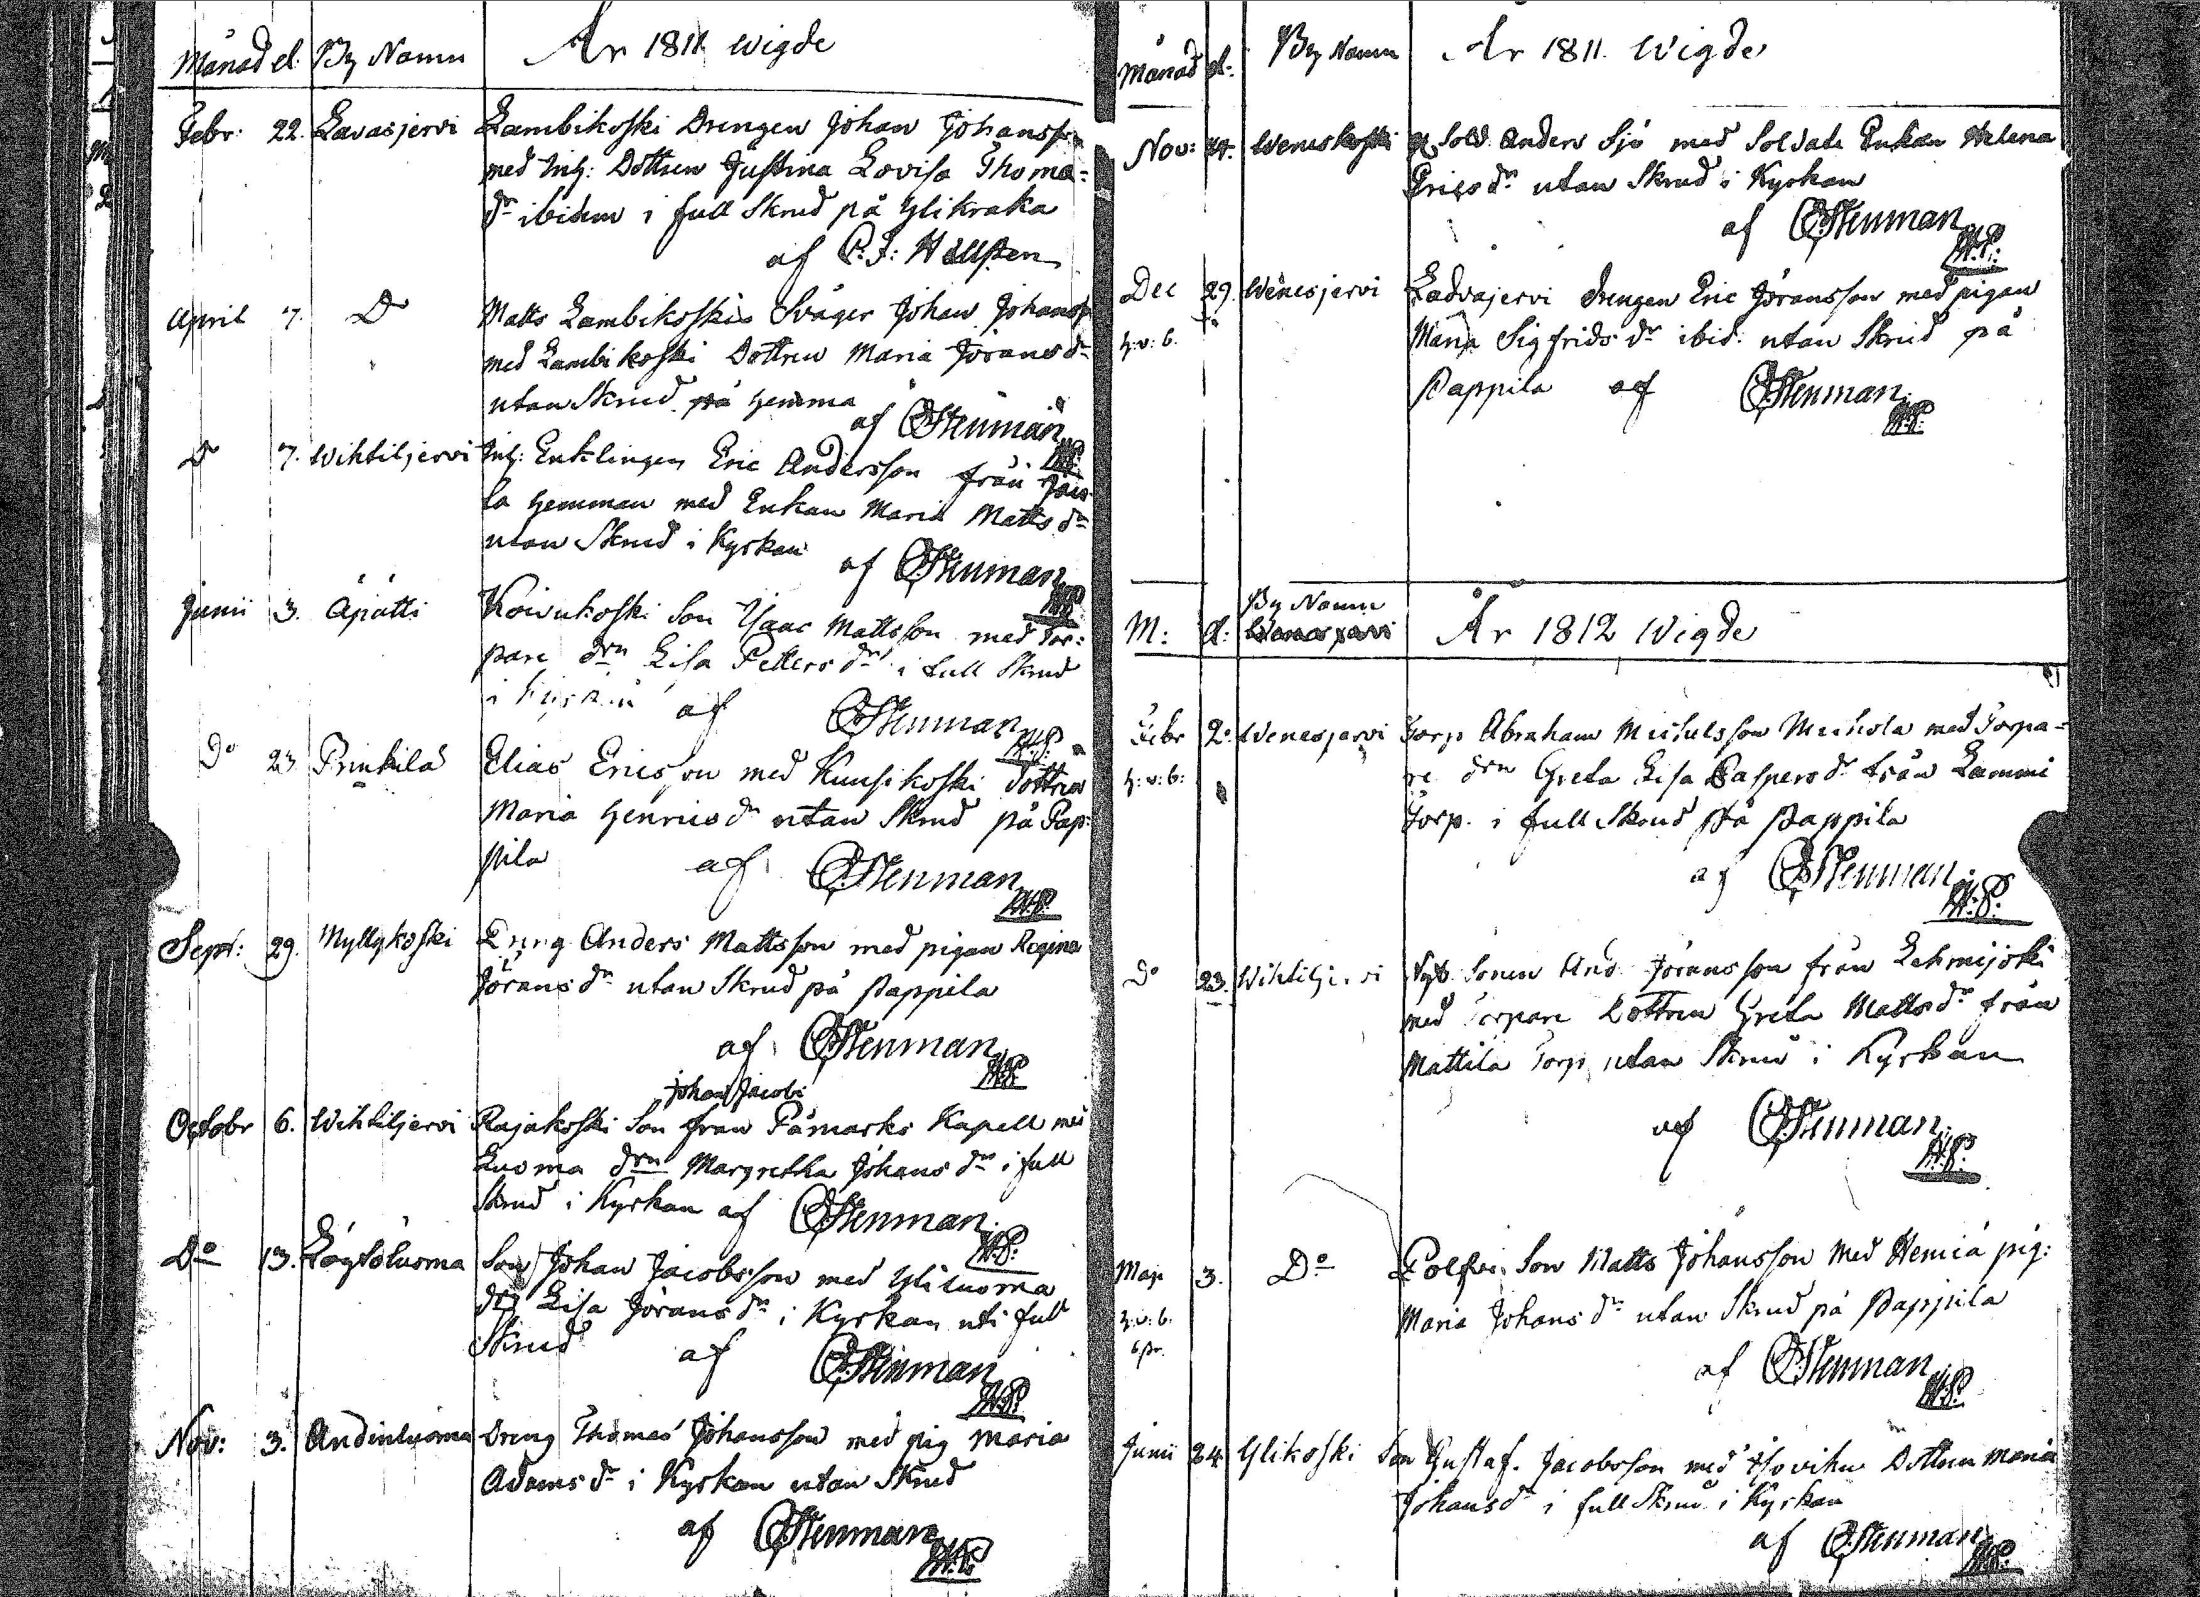 Månad d. By Namn År 1811 wigde
Febr: 22. Lavasjervi Lambikoski Drengen Johan Johansson
med Inh: Dottren Justina Lovisa Thoma=
dr ibidem i full Skrud på Ylikraka
af P. J: Hellsten
April 7. Do Matts Lambikoskis Svåger Johan Johanss
med Lambikoski Dottren Maria Jöransdr
utan Skrud på hemma
af Stenman
Do 7. Wihtiljervi Inh: Enklingen Eric Andersson från
la hemman med Enkan Maria Mattsdr
utan Skrud i Kyrkan
af Stenman
Junii 3. Äpätti Koivukoski Son Isaac Mattsson med Tor=
pare drn Lisa Pettersdr i full Skrud
i Kyrkan af Stenman
Do 23 Prinkilä Elias Ericsson med Kuusikoski Dottren
Maria Henricsdr utan Skrud på Pap=
pila af Stenman
Sept: 29. Myllykoski Dreng Anders Mattsson med pigan Regina
Jöransdr utan Skrud på Pappila
af Stenman
Johan Jacobs
Octobr 6. Wihtiljervi Rajakoski Son från Påmarks Kapell med
Luoma drn Margretha Johansdr i full
Skrud i Kyrkan af Stenman
Do 13. Löytöluoma Son Johan Jacobsson med Yliluoma
drn Lisa Jöransdr i Kyrkan uti full
Skrud af Stenman
Nov: 3. Andinluoma Dreng Thomas Johansson med pig Maria
Adamsdr i Kyrkan utan Skrud
af Stenman
Månad d: By Namn År 1811. Wigde
Nov: Weneskoski Sold. Anders Sjö med Soldats Enkan Helena
Ericsdr utan Skrud i Kyrkan
af Stenman
Dec 29. Wenesjervi Ladvajervi drengen Eric Jöransson med pigan
h: v: b. Maria Sigfridsdr ibid: utan Skrud på
Pappila af Stenman
By Namn
M: d: År 1812 Wigde
Febr 2. Wenesjärvi Torp Abraham Michelsson Michola med Torpa=
h: v: b: re drn Greta Lisa Caspersdr från Lammi
Torp. i full Skrud på Pappila
af Stenman
Do 23. Wihtiljervi Sonen And. Jöransson från Lehmijoki
med Torpare Dottren Greta Mattsdr från
Mattila Torp utan Skrud i Kyrkan
af Stenman
Maji 3. Do Son Matts Johansson med Hemiä pig:
h: v: b. Maria Johansdr utan Skrud på Pappila
af Stenman
Junii 24 Ylikoski Son Gustaf Jacobsson med Isovihu Dottren Maria
Johansdr i full Skrud i Kyrkan
af Stenman